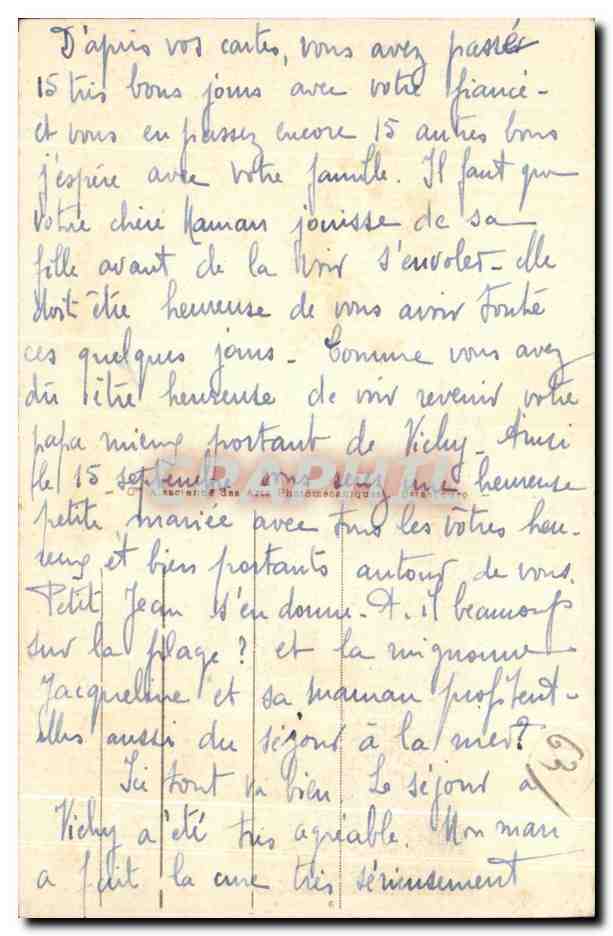 D'après vos cartes, vous avez passés
15 très bons jours avec votre fiancé -
et vous en passez encore 15 autres bons
j'espère avec votre famille. Il faut que
votre chère Maman jouisse de sa
fille avant de la voir s'envoler - elle
doit être heureuse de vous avoir toute
ces quelques jours - Comme vous avez
du être heureuse de voir revenir votre
papa mieux portant de Vichy. Ainsi
le 15 septembre vous serez une heureuse
CPAPHIL
Association des Arts Photomécaniques
petite mariée avec tous les vôtres heu-
reux et bien portants autour de vous.
Petit Jean s'en donne-t-il beaucoup
sur la plage ? et la mignonne
Jacqueline et sa maman profitent-
elles aussi du séjour à la mer ?
63
Ici tout va bien. Le séjour à
Vichy a été très agréable. Mon mari
a fait la cure très sérieusement